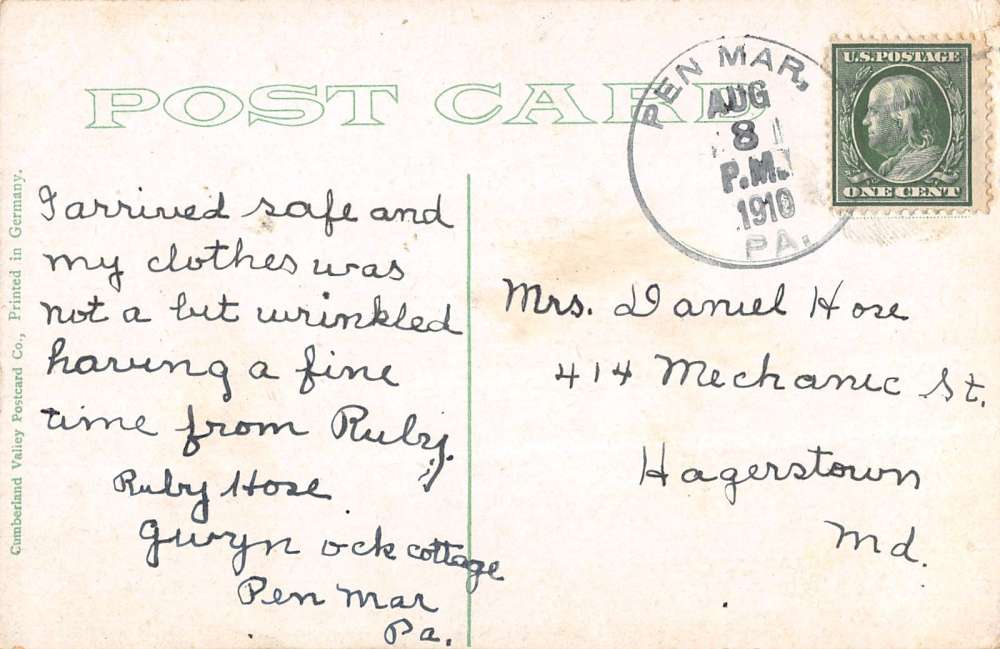 POST CARD
PEN MAR,
AUG
8
P.M.
1910
PA.
U.S. POSTAGE
ONE CENT
Cumberland Valley Postcard Co., Printed in Germany.
I arrived safe and
my clothes was
not a bit wrinkled
having a fine
time from Ruby.
Ruby Hose
Gwyn ock cottage
Pen Mar
Pa.
Mrs. Daniel Hose
414 Mechanic St.
Hagerstown
Md.